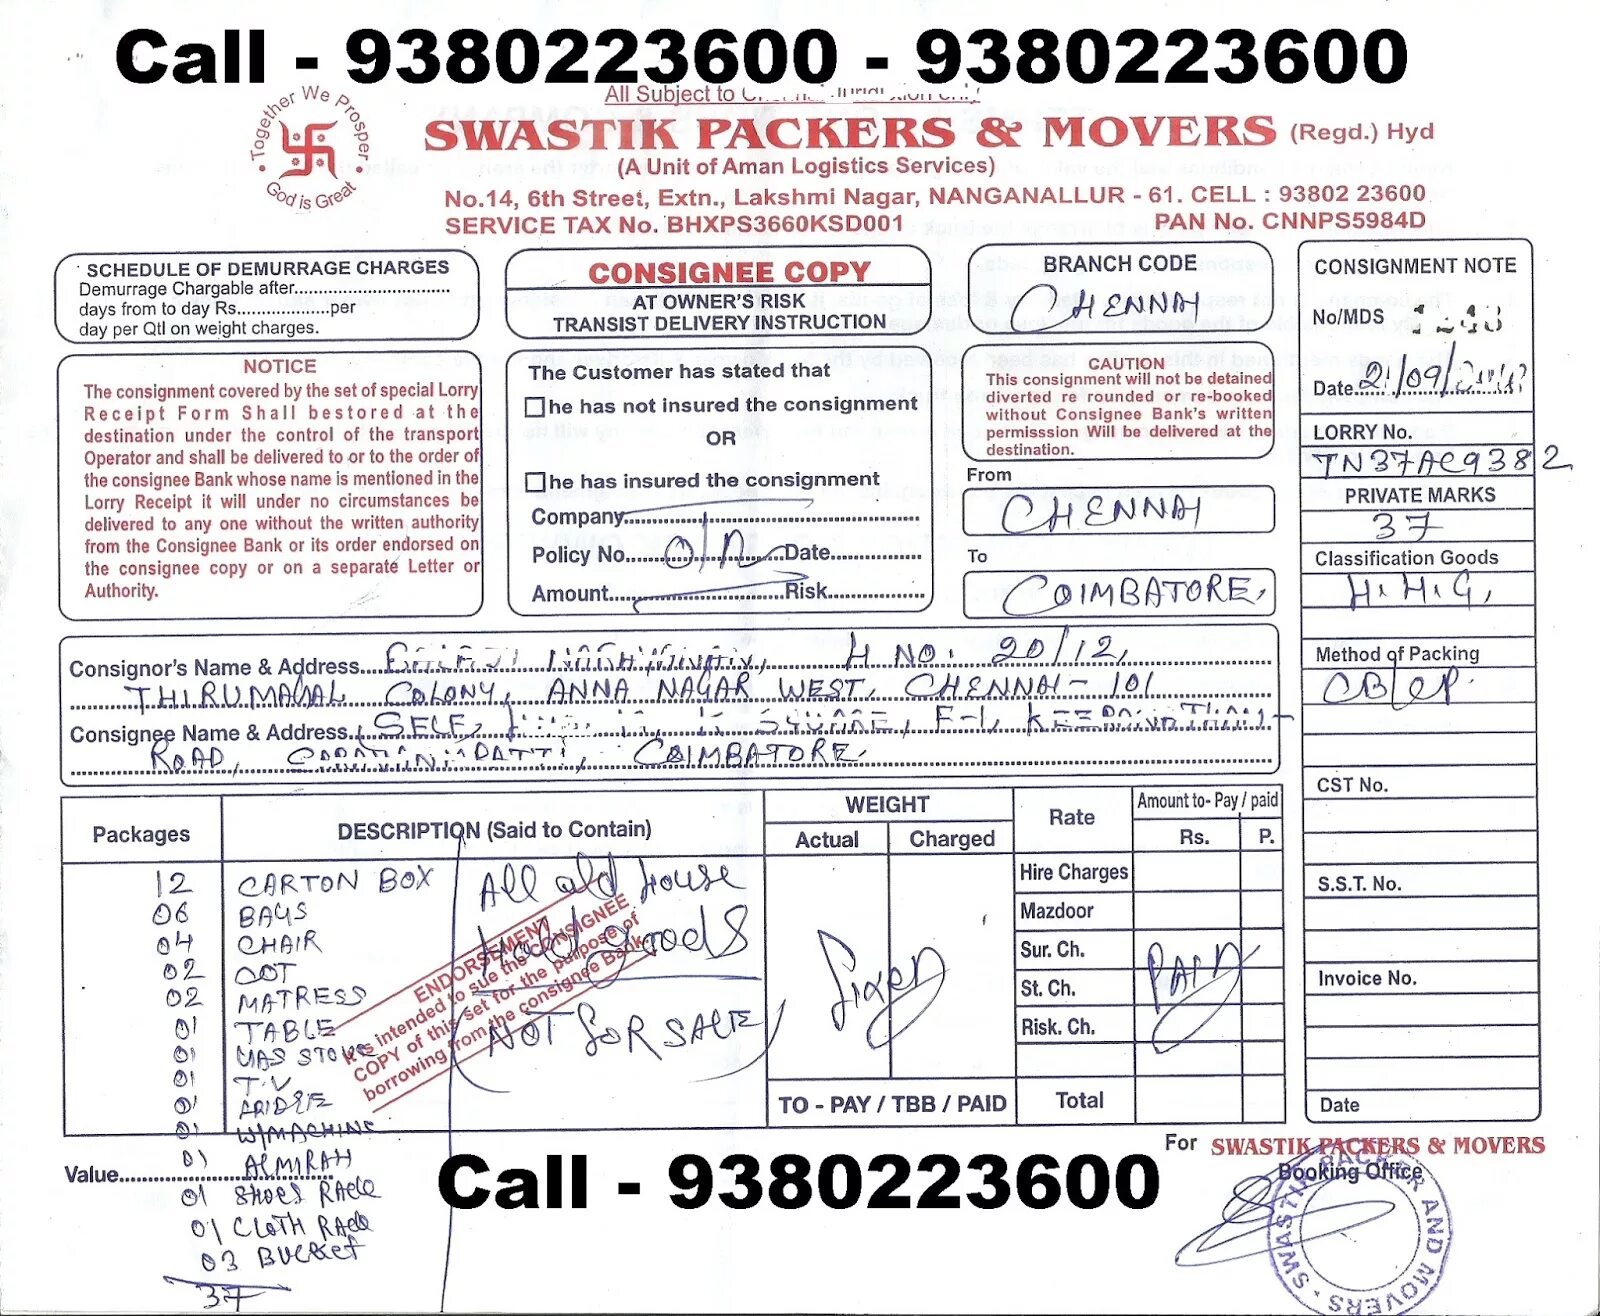 Call - 9380223600 - 9380223600
All Subject to
Together We Prosper
God is Great
SWASTIK PACKERS & MOVERS (Regd.) Hyd
(A Unit of Aman Logistics Services)
No.14, 6th Street, Extn., Lakshmi Nagar, NANGANALLUR - 61. CELL : 93802 23600
SERVICE TAX No. BHXPS3660KSD001 PAN No. CNNPS5984D
SCHEDULE OF DEMURRAGE CHARGES
Demurrage Chargable after
days from to day Rs per
day per Qtl on weight charges.
NOTICE
The consignment covered by the set of special Lorry
Receipt Form Shall bestored at the
destination under the control of the transport
Operator and shall be delivered to or to the order of
the consignee Bank whose name is mentioned in the
Lorry Receipt it will under no circumstances be
delivered to any one without the written authority
from the Consignee Bank or its order endorsed on
the consignee copy or on a separate Letter or
Authority.
CONSIGNEE COPY
AT OWNER'S RISK
TRANSIST DELIVERY INSTRUCTION
The Customer has stated that
he has not insured the consignment
OR
he has insured the consignment
Company
Policy No. O/N Date
Amount Risk
BRANCH CODE
CHENNAI
CAUTION
This consignment will not be detained
diverted re rounded or re-booked
without Consignee Bank's written
permisssion Will be delivered at the
destination.
From
CHENNAI
To
COIMBATORE.
CONSIGNMENT NOTE
No/MDS
Date 21/09/
LORRY No.
TN37AC9382
PRIVATE MARKS
37
Classification Goods
H.H.G,
Method of Packing
CB/CP.
CST No.
S.S.T. No.
Invoice No.
Date
Consignor's Name & Address H NO. 20/12,
THIRUMAGAL COLONY, ANNA NAGAR WEST, CHENNAI - 101
Consignee Name & Address SELF, SQUARE, F-1,
ROAD, COIMBATORE.
Packages DESCRIPTION (Said to Contain)
12 CARTON BOX
06 BAGS
04 CHAIR
02 COT
02 MATRESS
01 TABLE
01 GAS STOVE
01 T.V
01 FRIDGE
01 W/MACHINE
01 ALMIRAH
01 SHOES RACK
01 CLOTH RACK
03 BUCKET
37
All old House
Hold Goods
NOT FOR SALE
ENDORSEMENT
It is intended to sue the CONSIGNEE
COPY of this set for the purpose of
borrowing from the consignee Bank
WEIGHT
Actual Charged
Fixed
TO - PAY / TBB / PAID
Rate Amount to- Pay / paid
Rs. P.
Hire Charges
Mazdoor
Sur. Ch.
St. Ch.
Risk. Ch.
PAID
Total
Value
Call - 9380223600
For SWASTIK PACKERS & MOVERS
Booking Office
SWASTIK PACKER AND MOVERS